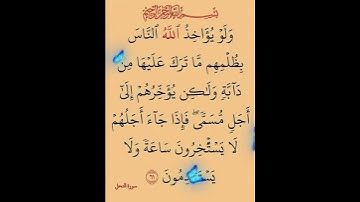 بِسْمِ اللَّهِ الرَّحْمَٰنِ الرَّحِيمِ
وَلَوْ يُؤَاخِذُ ٱللَّهُ ٱلنَّاسَ
بِظُلْمِهِم مَّا تَرَكَ عَلَيْهَا مِن
دَآبَّةٍ وَلَٰكِن يُؤَخِّرُهُمْ إِلَىٰٓ
أَجَلٍ مُّسَمًّى ۖ فَإِذَا جَآءَ أَجَلُهُمْ
لَا يَسْتَـْٔخِرُونَ سَاعَةً وَلَا
يَسْتَقْدِمُونَ ٦١
سورة النحل